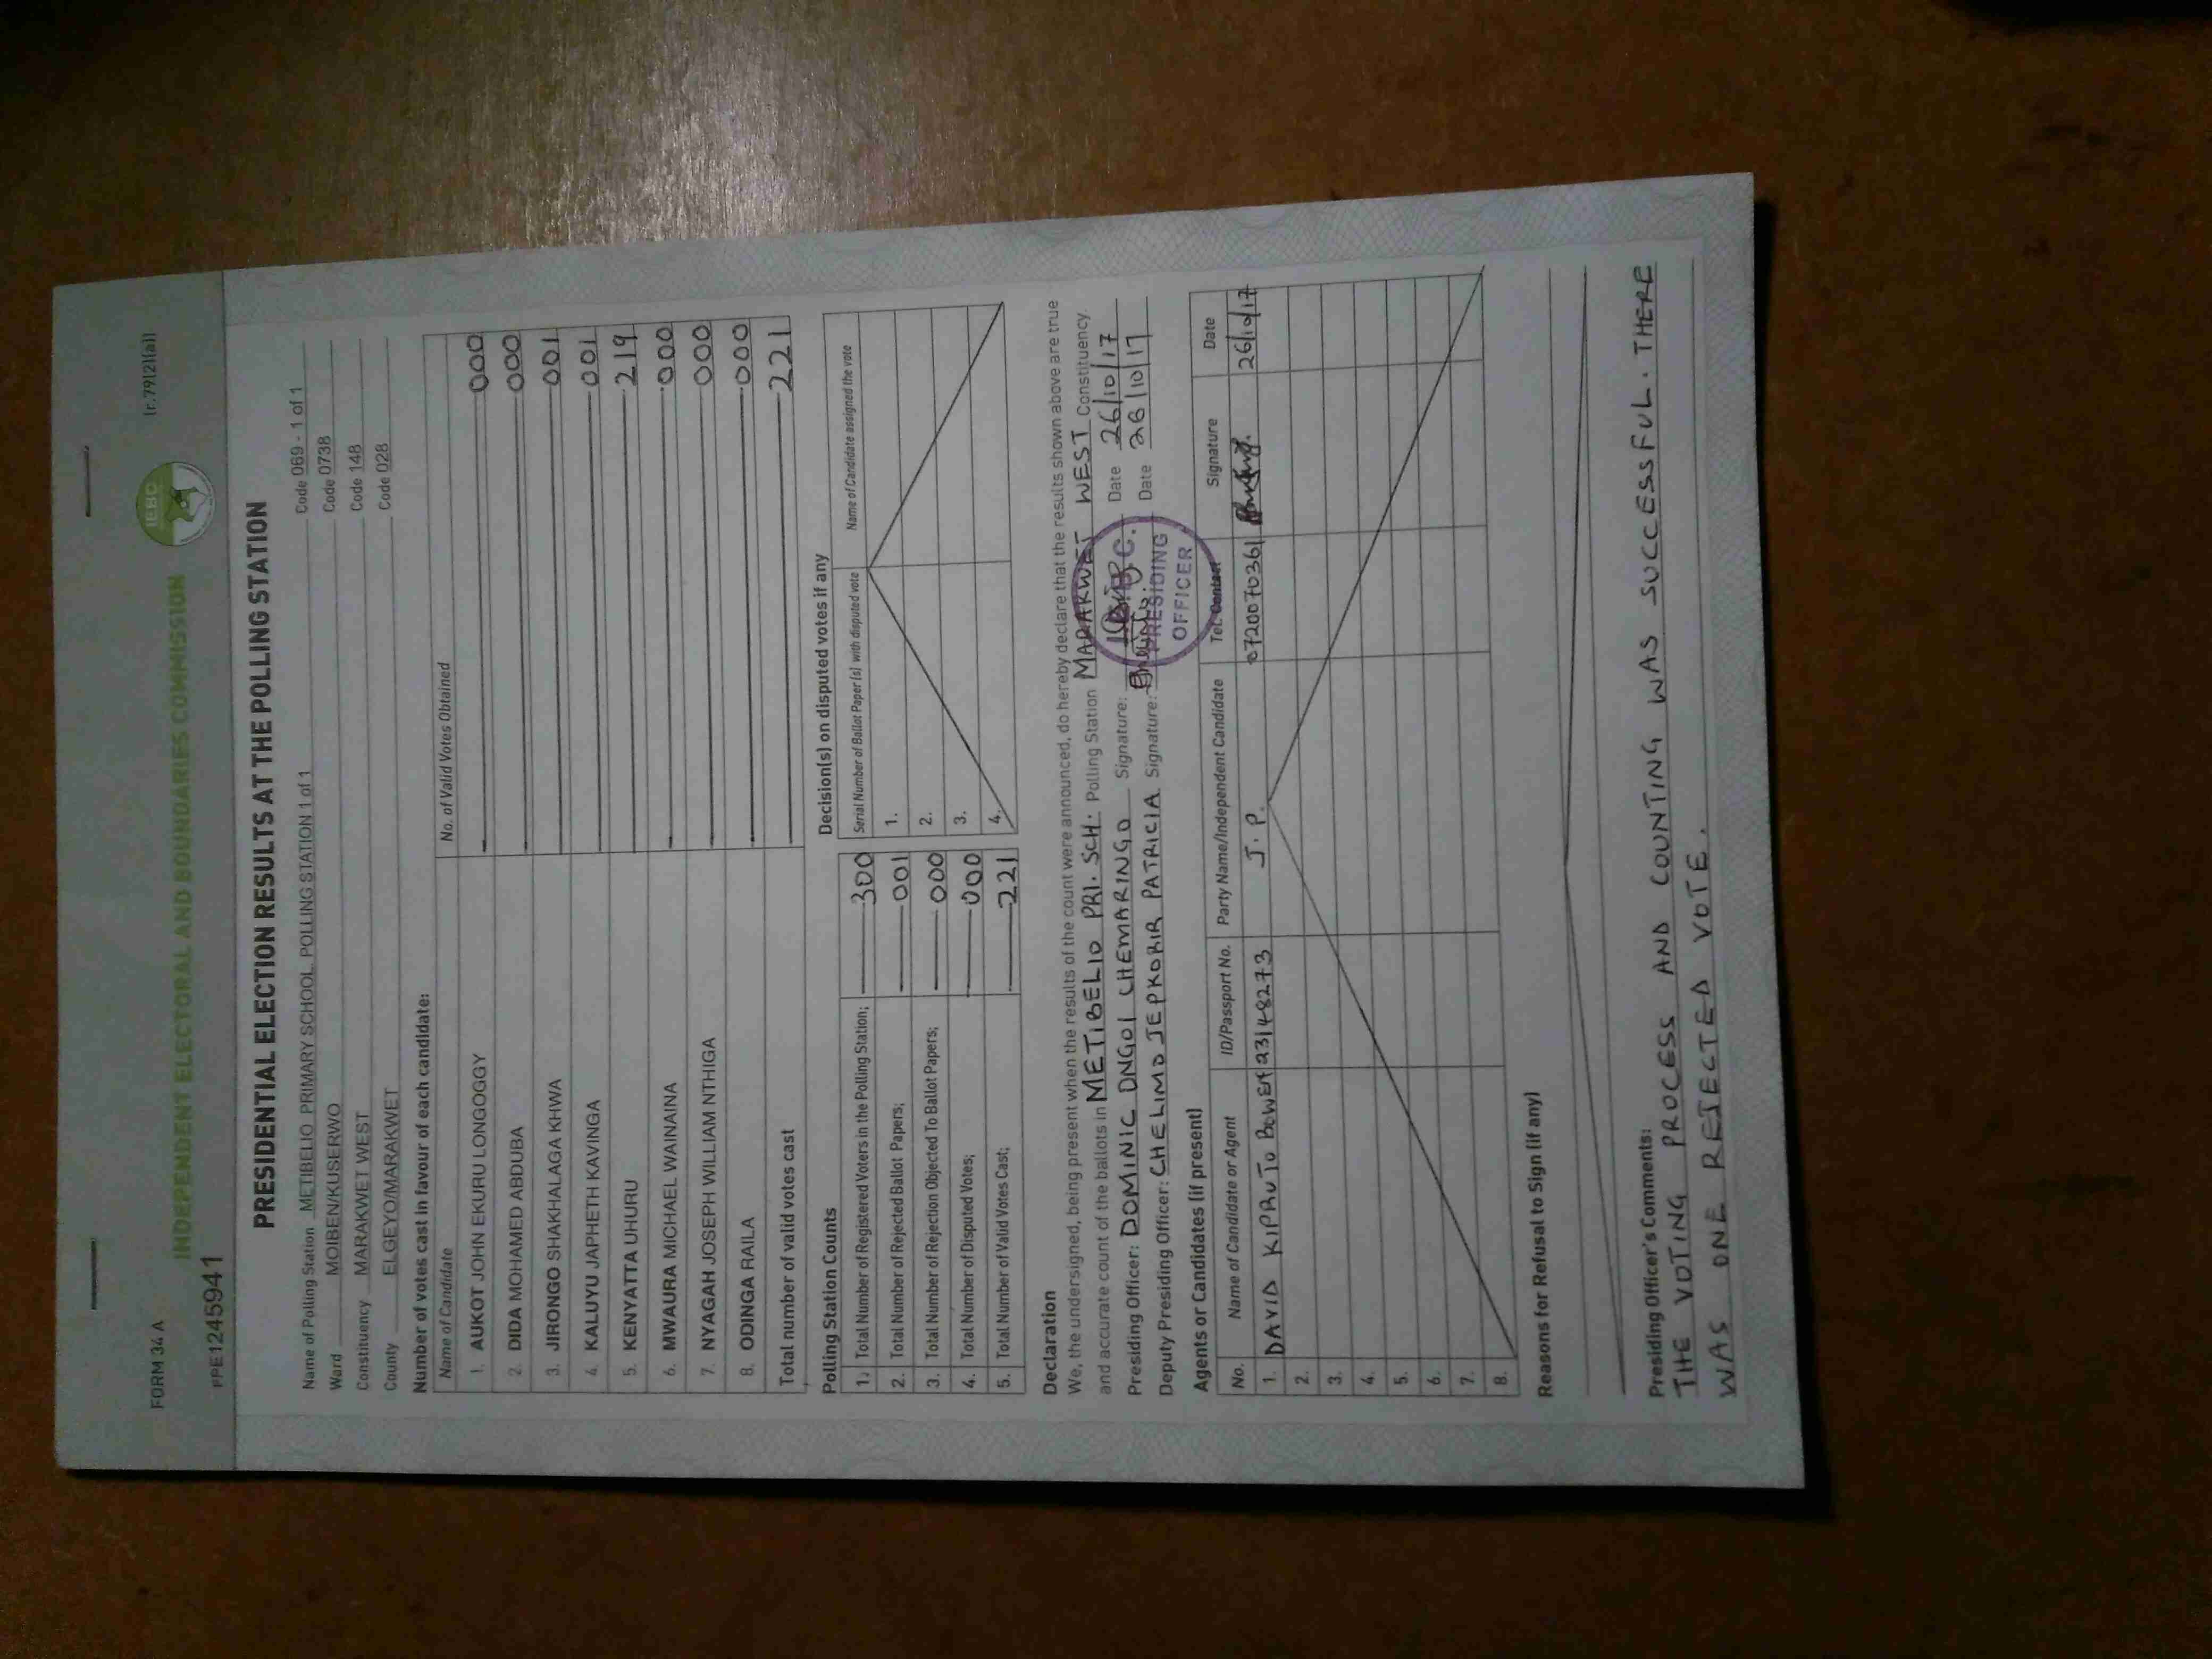 FORM 34 A
(r.79(2)(a))
INDEPENDENT ELECTORAL AND BOUNDARIES COMMISSION
IEBC
PPE1245941
PRESIDENTIAL ELECTION RESULTS AT THE POLLING STATION
Name of Polling Station METIBELIO PRIMARY SCHOOL, POLLING STATION 1 of 1 Code 069 - 1 of 1
Ward MOIBEN/KUSERWO Code 0738
Constituency MARAKWET WEST Code 148
County ELGEYO/MARAKWET Code 028
Number of votes cast in favour of each candidate:
Name of Candidate No. of Valid Votes Obtained
1. AUKOT JOHN EKURU LONGOGGY 000
2. DIDA MOHAMED ABDUBA 000
3. JIRONGO SHAKHALAGA KHWA 001
4. KALUYU JAPHETH KAVINGA 001
5. KENYATTA UHURU 219
6. MWAURA MICHAEL WAINAINA 000
7. NYAGAH JOSEPH WILLIAM NTHIGA 000
8. ODINGA RAILA 000
Total number of valid votes cast 221
Polling Station Counts
1. Total Number of Registered Voters in the Polling Station; 300
2. Total Number of Rejected Ballot Papers; 001
3. Total Number of Rejection Objected To Ballot Papers; 000
4. Total Number of Disputed Votes; 000
5. Total Number of Valid Votes Cast; 221
Decision(s) on disputed votes if any
Serial Number of Ballot Paper(s) with disputed vote Name of Candidate assigned the vote
1.
2.
3.
4.
Declaration
We, the undersigned, being present when the results of the count were announced, do hereby declare that the results shown above are true
and accurate count of the ballots in METIBELIO PRI. SCH. Polling Station MARAKWET WEST Constituency.
Presiding Officer: DOMINIC ONGOI CHEMARINGO Signature: Date 26/10/17
Deputy Presiding Officer: CHELIMO JEPKORIR PATRICIA Signature: Date 26/10/17
PRESIDING
OFFICER
Agents or Candidates (if present)
No. Name of Candidate or Agent ID/Passport No. Party Name/Independent Candidate Tel. Contact Signature Date
1. DAVID KIPRUTO 23148273 J.P. 0720070361 26/10/17
2.
3.
4.
5.
6.
7.
8.
Reasons for Refusal to Sign (if any)
Presiding Officer's Comments:
THE VOTING PROCESS AND COUNTING WAS SUCCESSFUL. THERE
WAS ONE REJECTED VOTE.